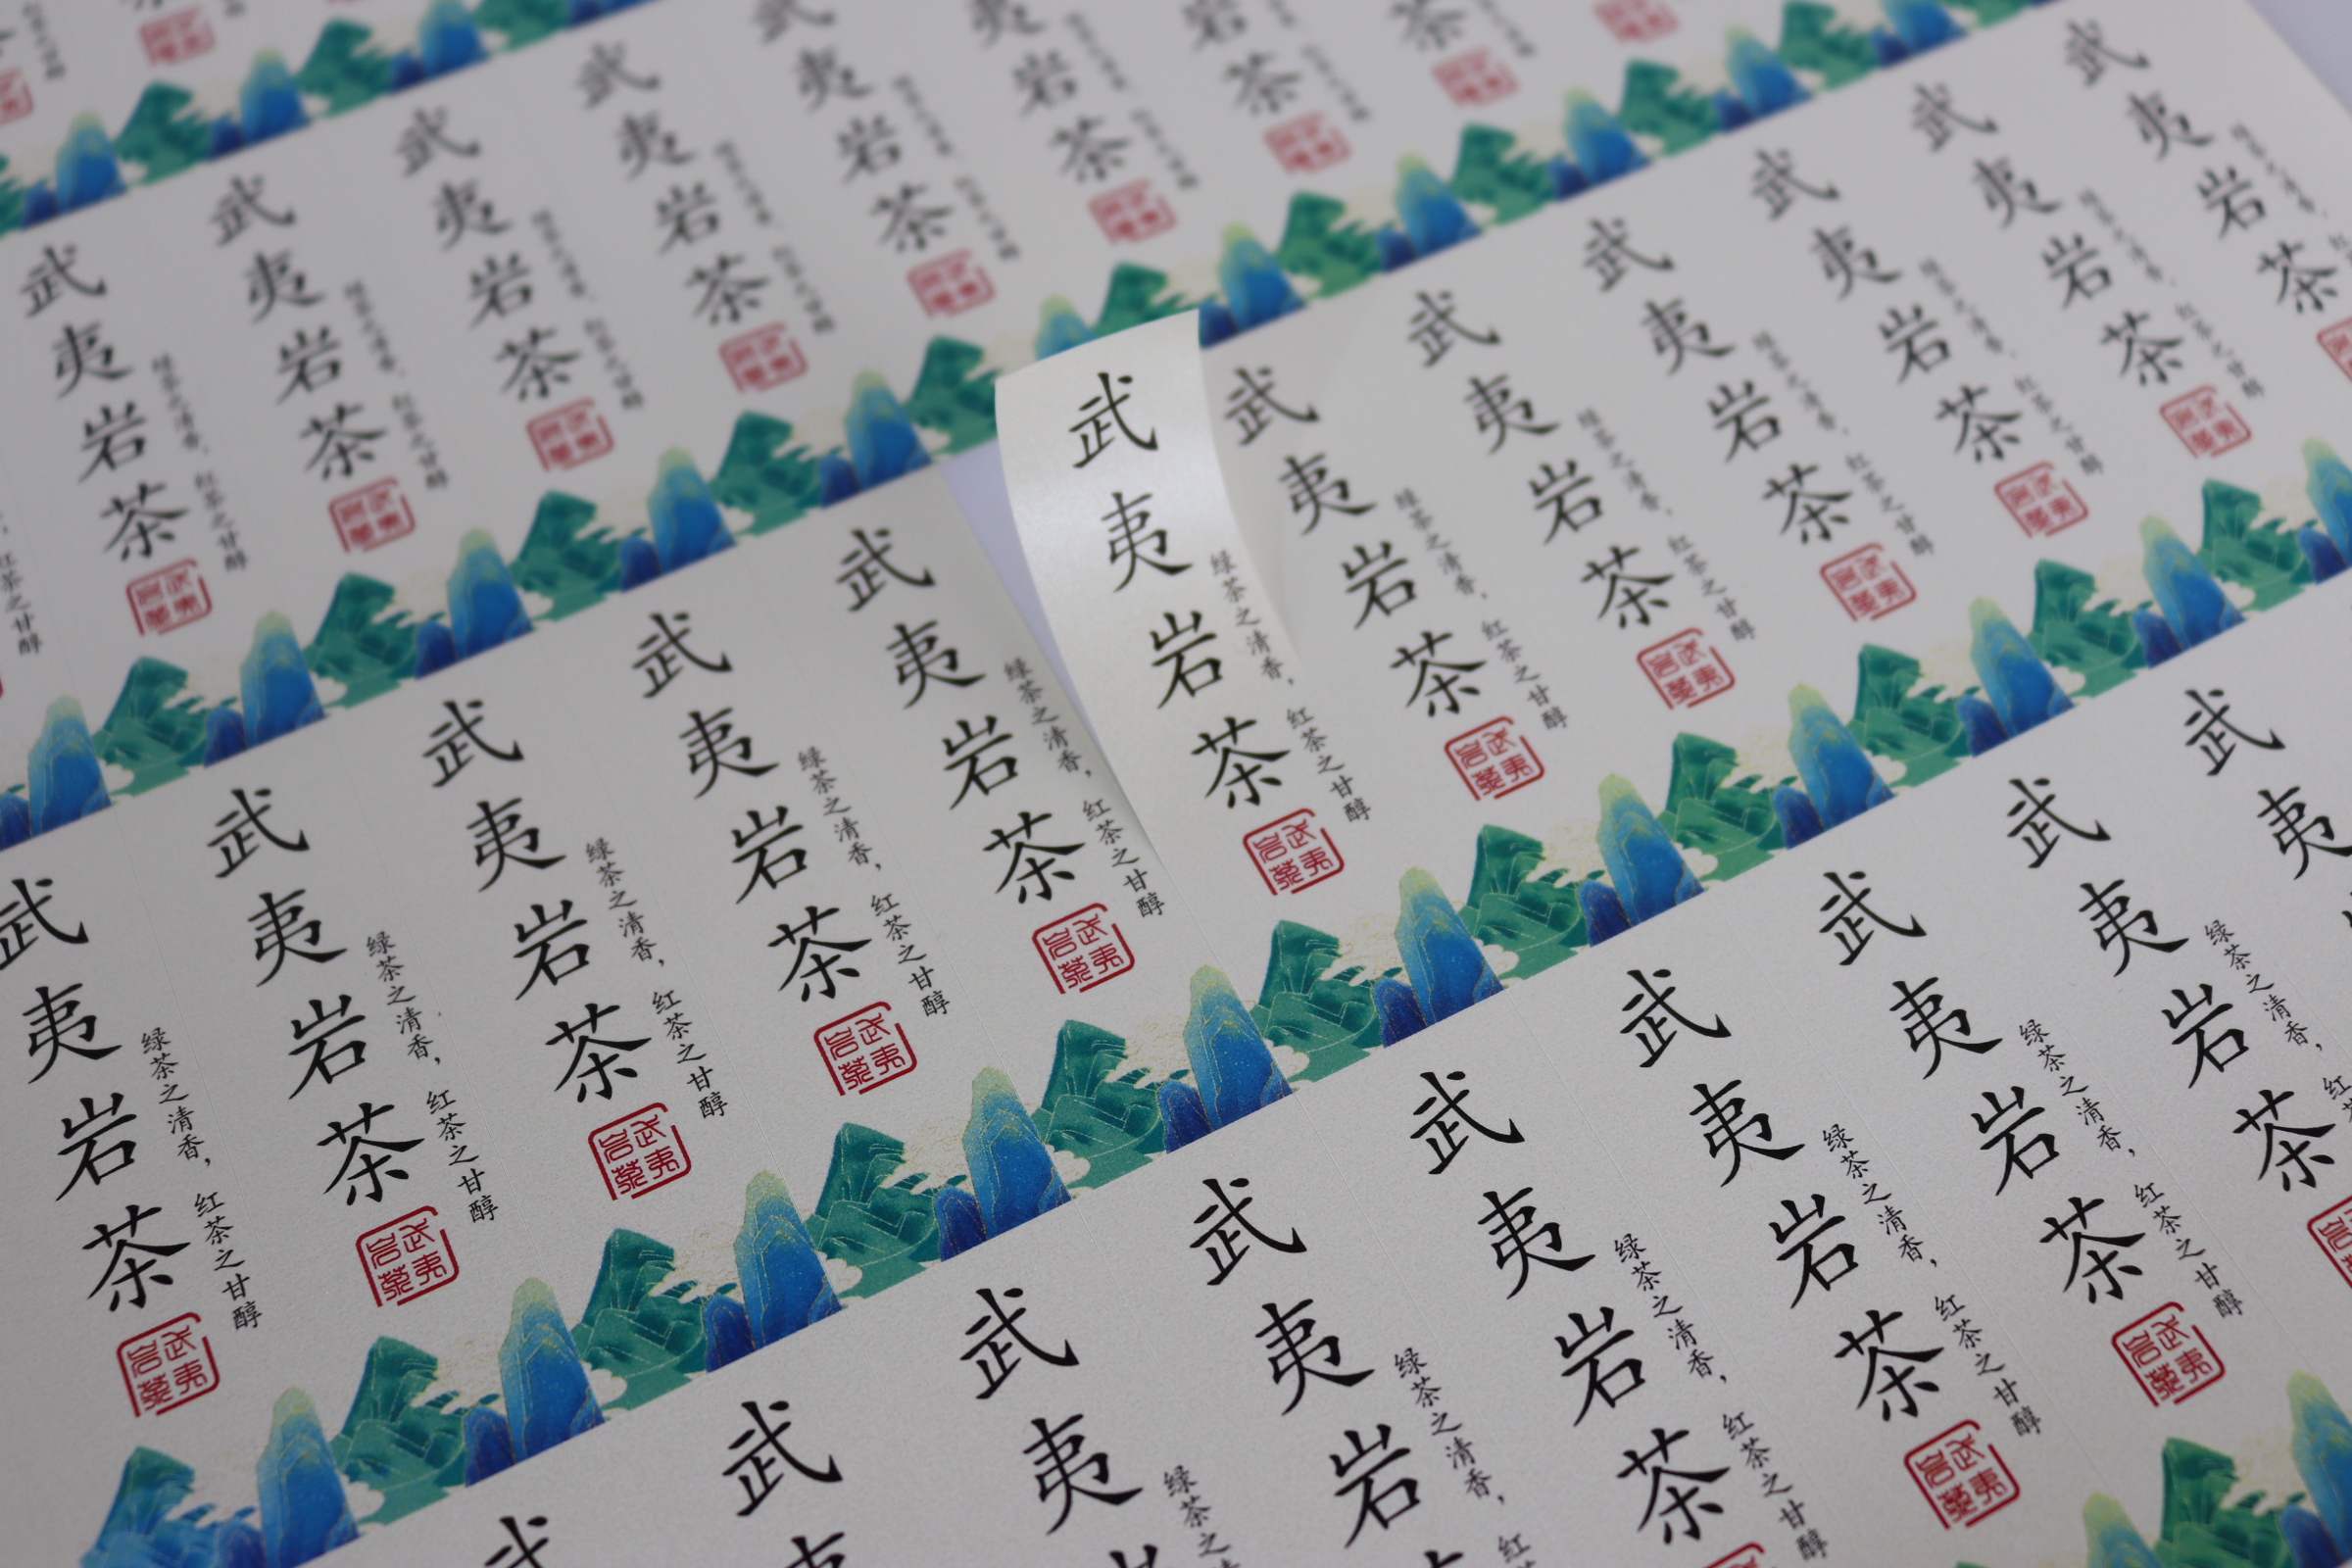 武夷岩茶
绿茶之清香，红茶之甘醇
武夷岩茶